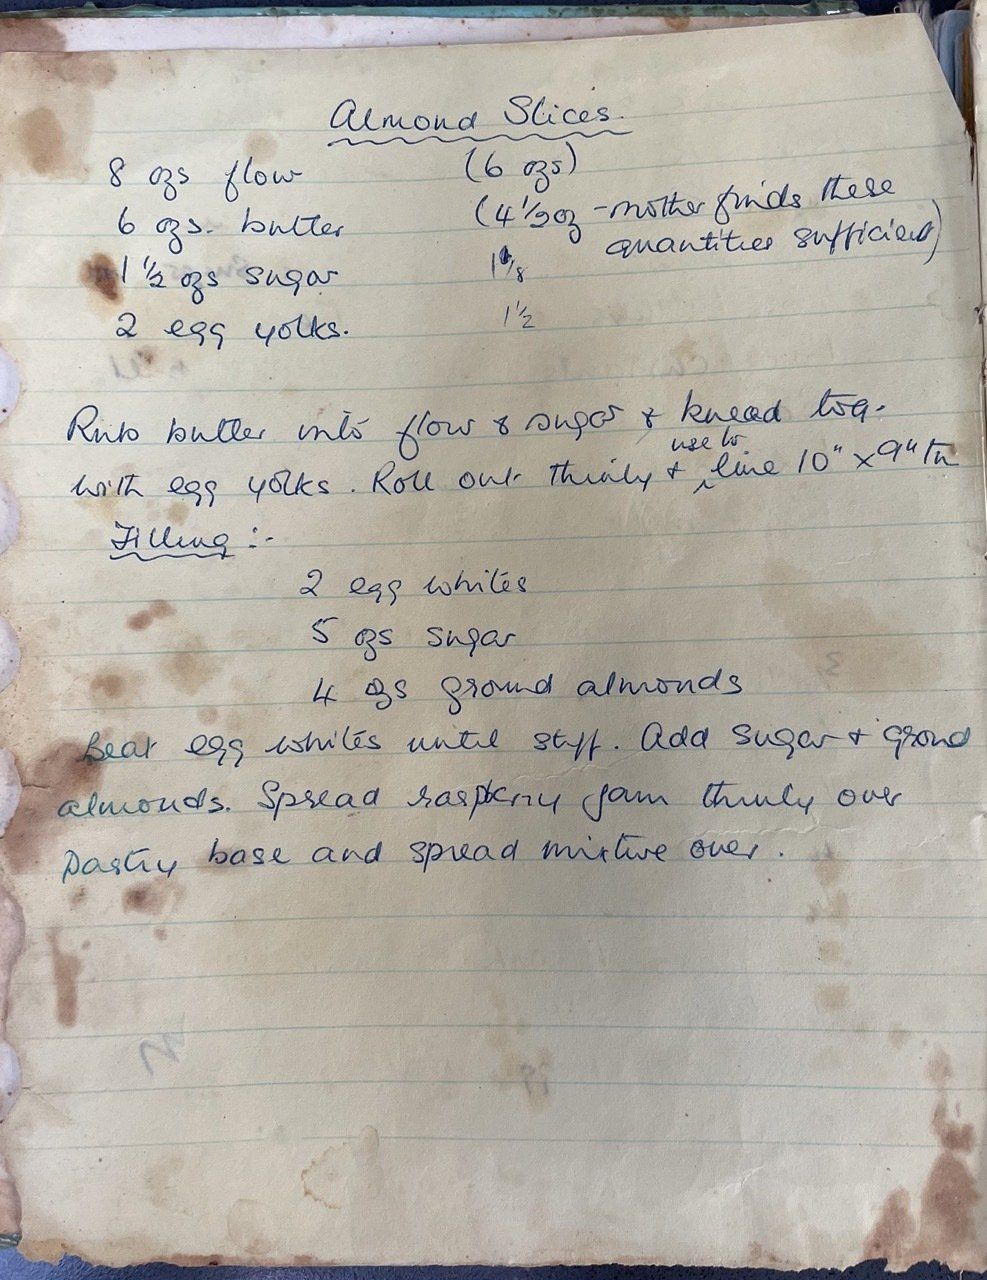 Almond Slices.
8 ozs flour (6 ozs)
6 ozs. butter (4 1/2 oz - mother finds these
quantities sufficient)
1 1/2 ozs sugar 1 1/8
2 egg yolks. 1 1/2
Rub butter into flour & sugar & knead tog.
use to
with egg yolks. Roll out thinly & line 10" x 9" tin
Filling :-
2 egg whites
5 ozs sugar
4 ozs ground almonds
Beat egg whites until stiff. Add sugar & ground
almonds. Spread raspberry jam thinly over
pastry base and spread mixture over.